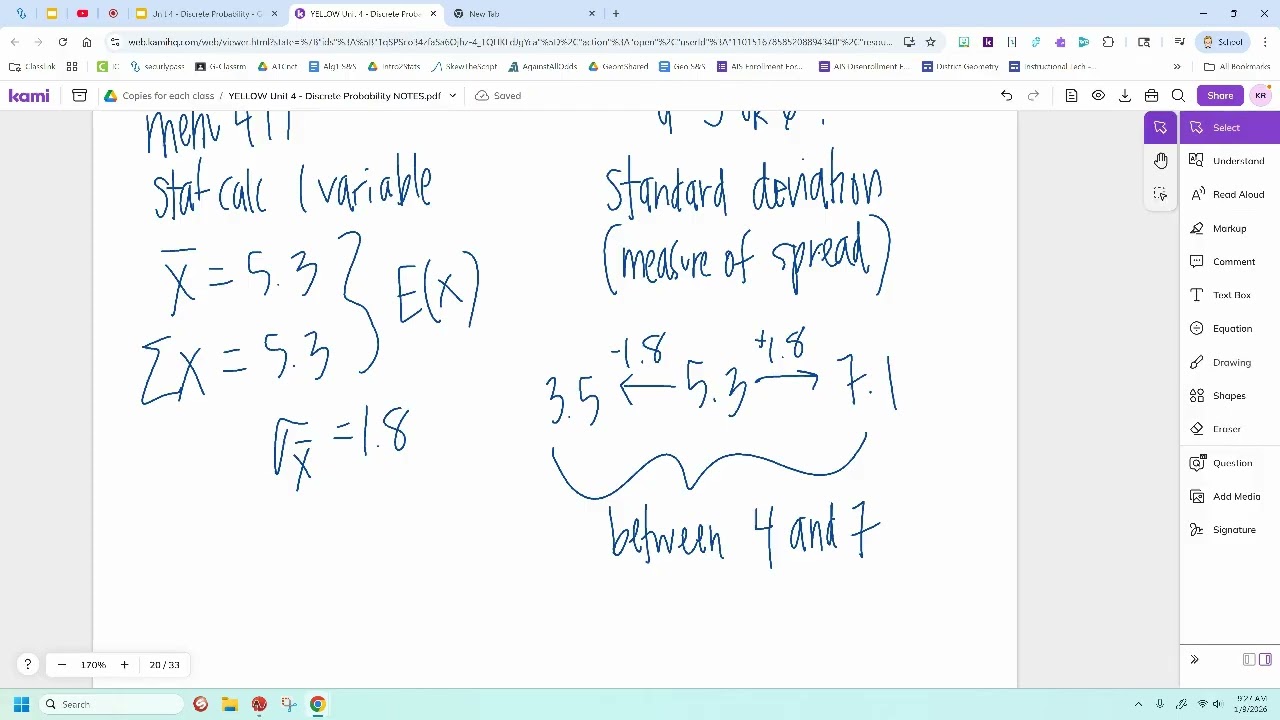 YELLOW Unit 4 - Discrete Proba
New Tab
School
ClassLink
IC
securlypass
G-Classrm
A1Cnct
Alg1 S&G
Intro2Stats
SkewTheScript
AgainstAllOdds
GeomShared
Geo S&G
AIS Enrollment For...
AIS Disenrollment F...
District Geometry
Instructional Tech -...
All Bookmarks
kami
Copies for each class / YELLOW Unit 4 - Discrete Probability NOTES.pdf
Saved
Share
KR
menu 4 1 1
stat calc 1 variable
x̄ = 5.3
Σx = 5.3
E(x)
σx = 1.8
standard deviation
(measure of spread)
-1.8 +1.8
3.5 ← 5.3 → 7.1
between 4 and 7
Select
Understand
Read Aloud
Markup
Comment
Text Box
Equation
Drawing
Shapes
Eraser
Question
Add Media
Signature
? − 170% + 20 / 33
Search
9:27 AM
1/9/2026